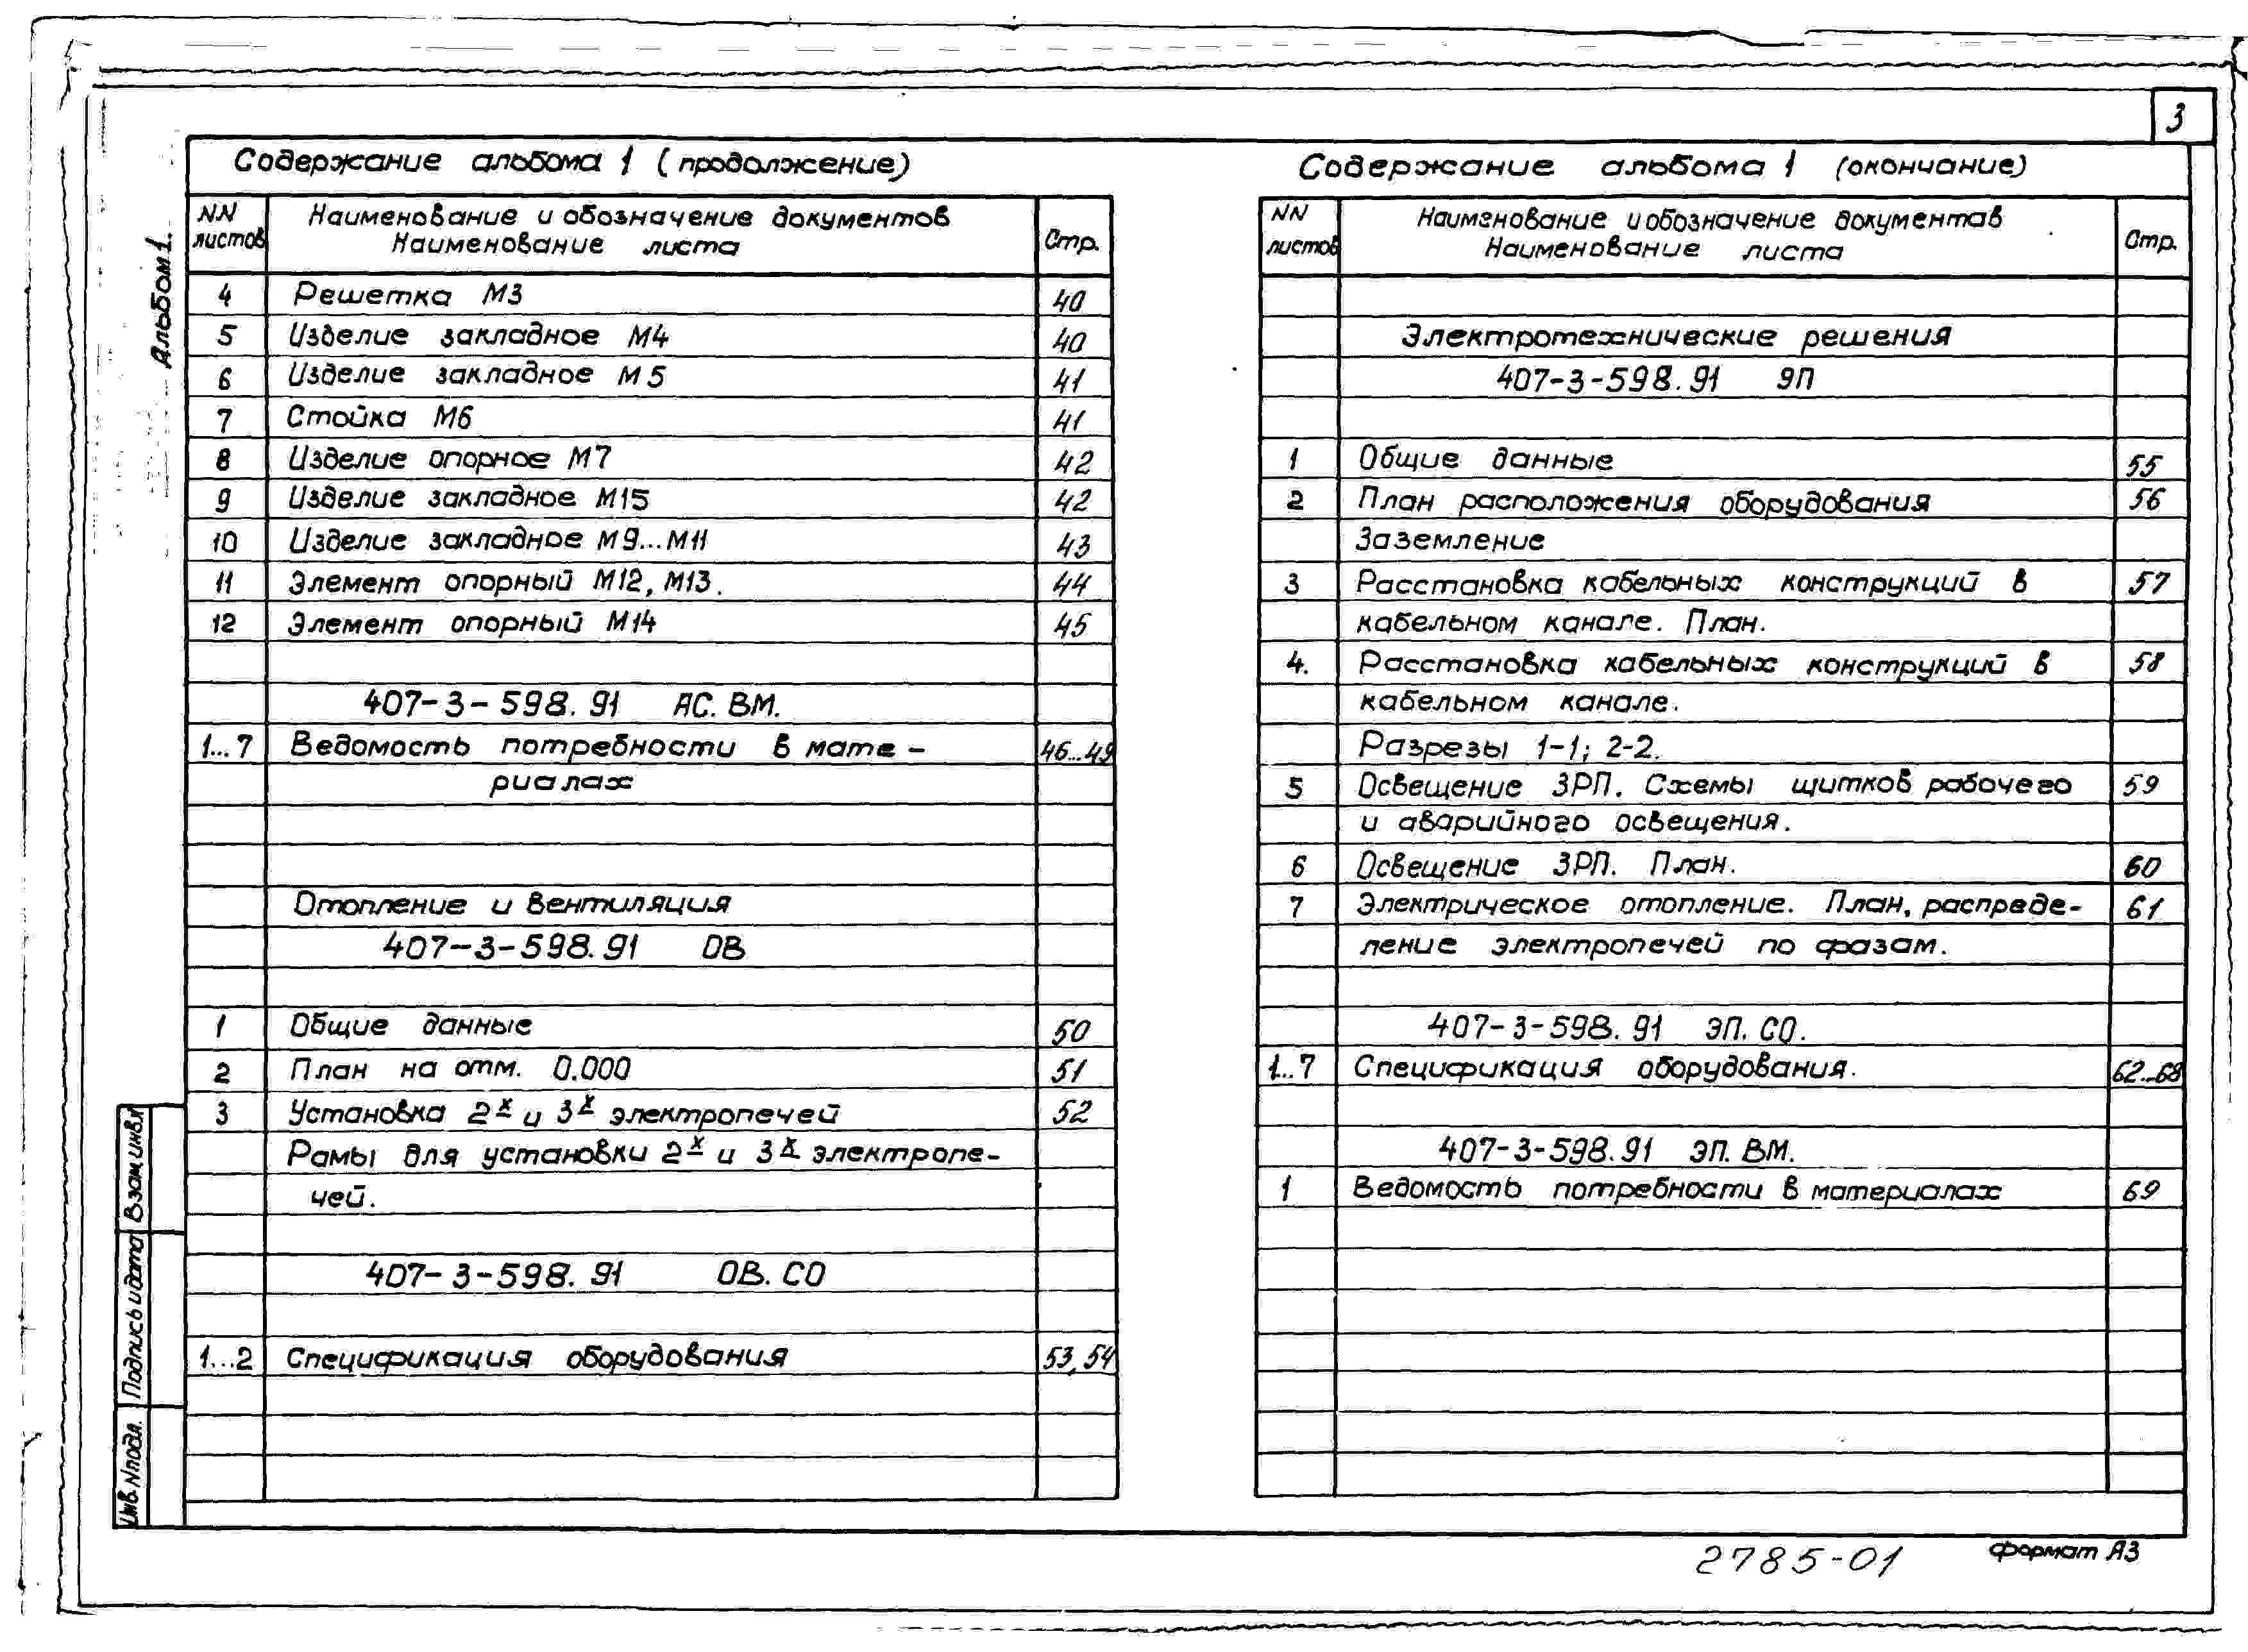 3
Альбом 1.
Содержание альбома 1 (продолжение)
NN листов
Наименование и обозначение документов
Наименование листа
Стр.
4 Решетка М3 40
5 Изделие закладное М4 40
6 Изделие закладное М5 41
7 Стойка М6 41
8 Изделие опорное М7 42
9 Изделие закладное М15 42
10 Изделие закладное М9...М11 43
11 Элемент опорный М12, М13. 44
12 Элемент опорный М14 45
407-3-598.91 АС. ВМ.
1...7 Ведомость потребности в мате- 46...49
риалах
Отопление и вентиляция
407-3-598.91 ОВ
1 Общие данные 50
2 План на отм. 0.000 51
3 Установка 2х и 3х электропечей 52
Рамы для установки 2х и 3х электропе-
чей.
407-3-598.91 ОВ. СО
1...2 Спецификация оборудования 53, 54
Содержание альбома 1 (окончание)
NN листов
Наименование и обозначение документав
Наименование листа
Стр.
Электротехнические решения
407-3-598.91 ЭП
1 Общие данные 55
2 План расположения оборудования 56
Заземление
3 Расстановка кабельных конструкций в 57
кабельном канале. План.
4. Расстановка кабельных конструкций в 58
кабельном канале.
Разрезы 1-1; 2-2.
5 Освещение ЗРП. Схемы щитков рабочего 59
и аварийного освещения.
6 Освещение ЗРП. План. 60
7 Электрическое отопление. План, распреде- 61
ление электропечей по фазам.
407-3-598.91 ЭП. СО.
1..7 Спецификация оборудования. 62...68
407-3-598.91 ЭП. ВМ.
1 Ведомость потребности в материалах 69
Взам.инв.N
Подпись и дата
Инв.N подл.
2785-01
формат А3